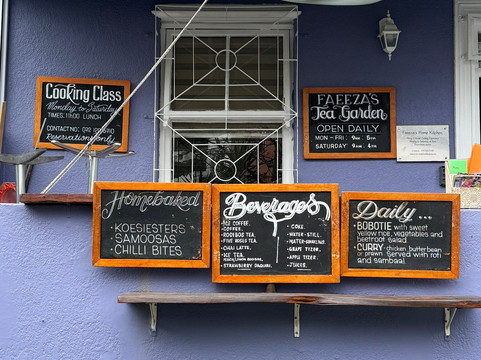 Cooking Class
Monday to Saturday
TIMES: 11h00 LUNCH
CONTACT NO:
Reservations only
FAEEZA'S
Tea Garden
OPEN DAILY
MON - FRI 9am - 5pm
SATURDAY 9am - 4pm
Faeeza's Home Kitchen
Homebaked
KOESIESTERS
SAMOOSAS
CHILLI BITES
Beverages
ICE COFFEE.
COFFEE.
ROOIBOS TEA.
FIVE ROSES TEA.
CHAI LATTE.
ICE TEA.
STRAWBERRY DAIQUIRI.
COKE
WATER-STILL.
WATER-SPARKLING.
GRAPE TIZER.
APPLE TIZER.
JUICES.
Daily...
BOBOTIE with sweet
yellow rice, vegetables and
beetroot salad.
CURRY chicken, butter bean
or prawn. Served with roti
and sambaal.